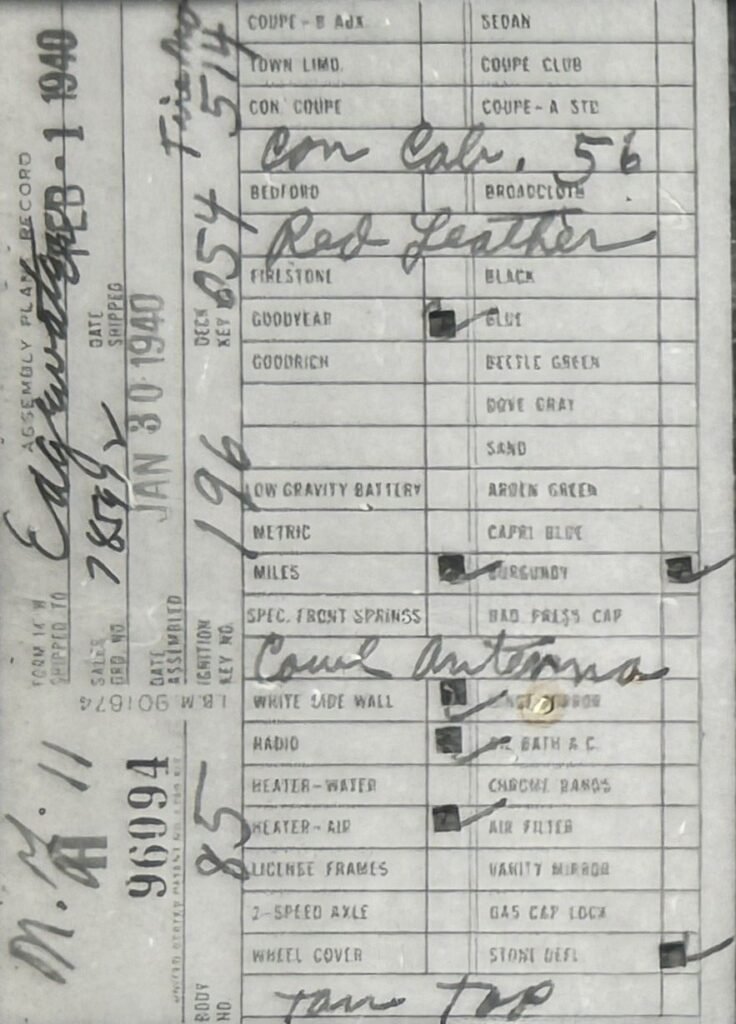 COUPE-B AUX. SEDAN
TOWN LIMO. COUPE CLUB
CON. COUPE COUPE-A STD
Con Cab. 56
BEDFORD BROADCLOTH
Red Leather
FIRESTONE BLACK
GOODYEAR BLUE
GOODRICH BEETLE GREEN
DOVE GRAY
SAND
LOW GRAVITY BATTERY ARDEN GREEN
METRIC CAPRI BLUE
MILES BURGUNDY
SPEC. FRONT SPRINGS RAD. PRESS CAP
Cowl Antenna
WHITE SIDE WALL
RADIO OIL BATH A.C.
HEATER-WATER CHROME BANDS
HEATER-AIR AIR FILTER
LICENSE FRAMES VANITY MIRROR
2-SPEED AXLE GAS CAP LOCK
WHEEL COVER STONE DEFL.
Tan Top
ASSEMBLY PLANT RECORD
FORM 14 W
SHIPPED TO Edgewater
SALES ORD NO. 78592
DATE SHIPPED FEB-1 1940
DATE ASSEMBLED JAN 30 1940
IGNITION KEY NO. 196
DECK KEY 054
514
I.B.M. 901674
N.Y. 11
H
96094
BODY NO. 85